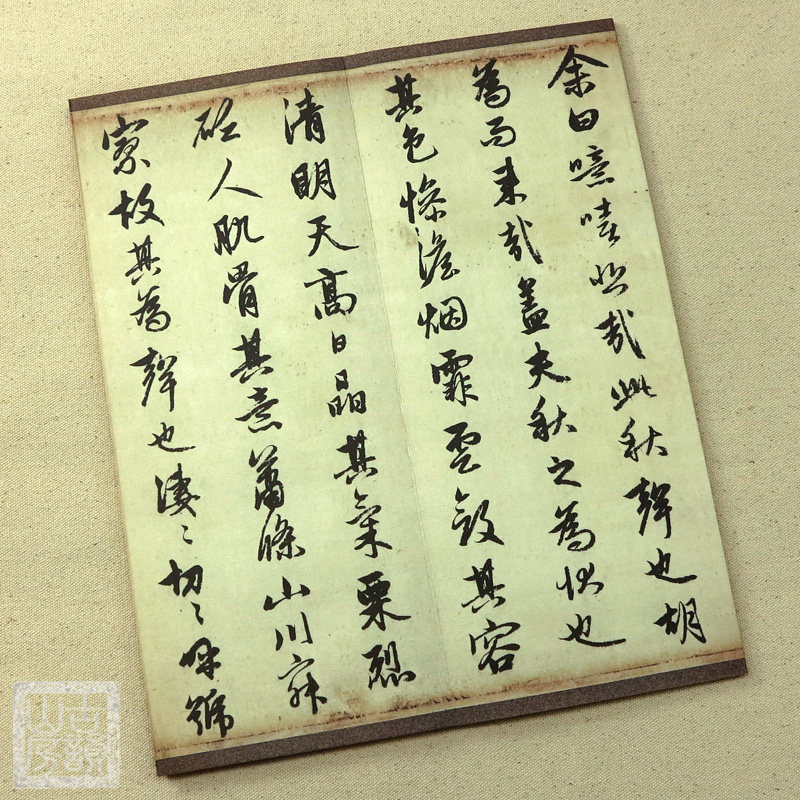 余曰噫嘻悲哉此秋聲也胡
為而来哉蓋夫秋之為狀也
其色慘澹烟霏雲斂其容
清明天高日晶其氣栗烈
砭人肌骨其意蕭條山川寂
寥故其為聲也淒〻切〻呼號